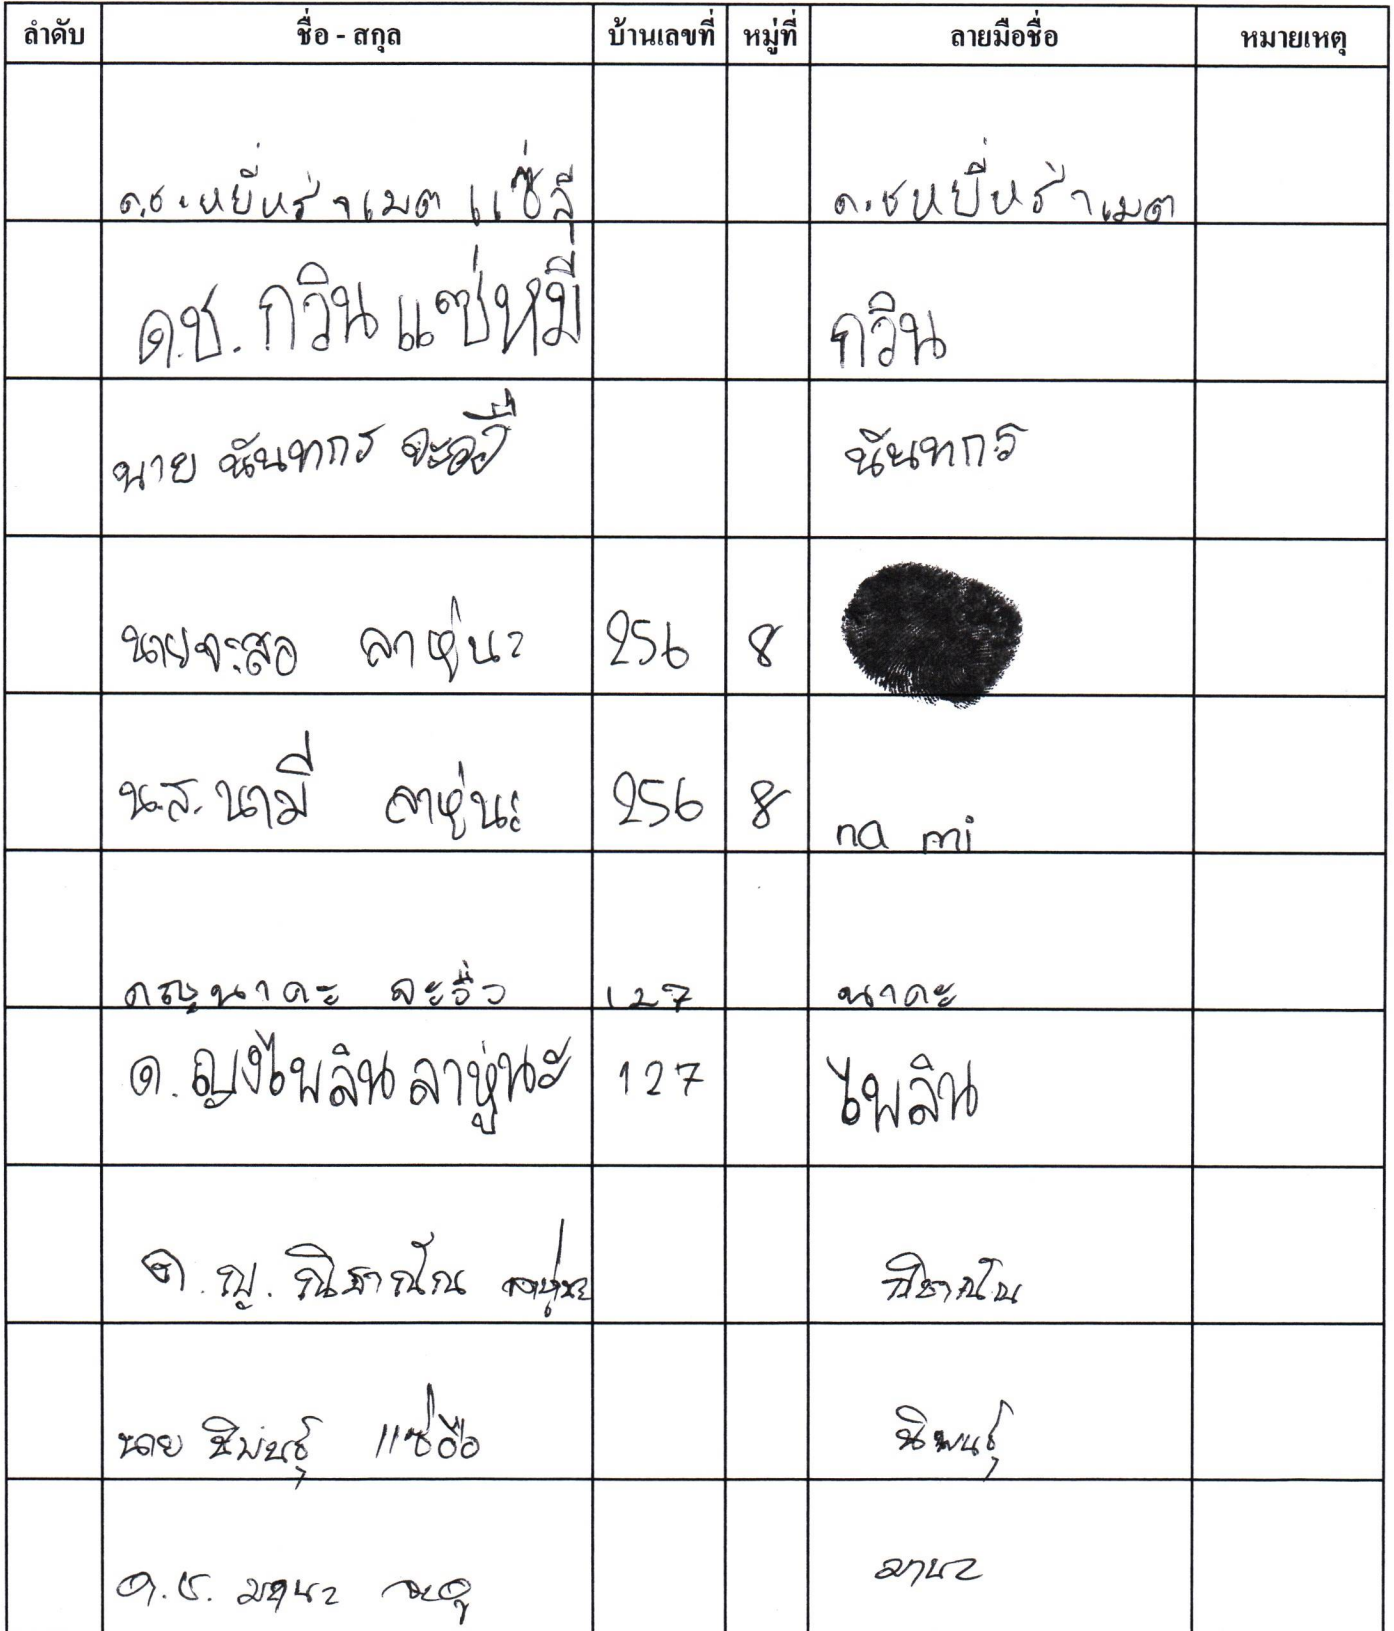 ลำดับ ชื่อ - สกุล บ้านเลขที่ หมู่ที่ ลายมือชื่อ หมายเหตุ
ด.ช. หยี่หร่าเมต แซ่ลี ด.ช หยี่หร่าเมต
ด.ช. กวิน แซ่หมี กวิน
นาย นันทกร จะอื่อ นันทกร
นายจะสอ ลาหู่นะ 256 8
น.ส. นามี ลาหู่นะ 256 8 na mi
ดญ นาคะ จะจื่อ 127 นาคะ
ด.ญงไพลิน ลาหู่นะ 127 ไพลิน
ด.ญ. ลาหู่นะ
นาย นิพนธ์ุ แซ่อือ นิพนธ์ุ
ด.ช. มานะ มานะ